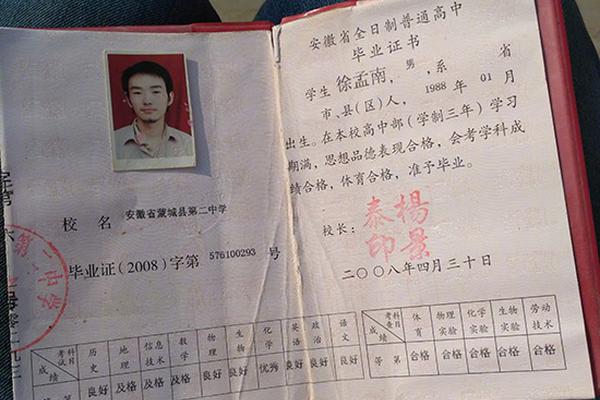 校名 安徽省蒙城县第二中学
毕业证(2008)字第 576100293 号
考试科目 历史 地理 信息技术 数学 物理 生物 化学 英语 政治 语文
成绩 良好 及格 及格 及格 良好 良好 优秀 良好 良好 良好
安徽省全日制普通高中
毕业证书
学生 徐孟南,男,系 省
市、县(区)人,1988 年 01 月
出生。在本校高中部(学制三年)学习
期满,思想品德表现合格,会考学科成
绩合格,体育合格,准予毕业。
校长: 泰楊印景
二〇〇八年四月三十日
考查科目 体育 物理实验 化学实验 生物实验 劳动技术
成绩
等第 合格 合格 合格 合格 合格
第二中学